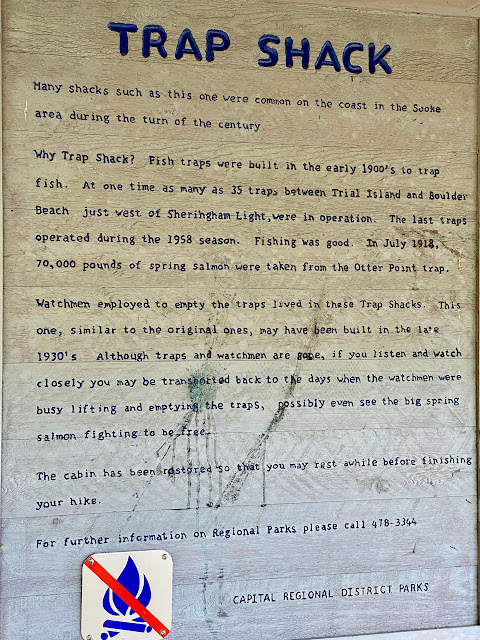 TRAP SHACK
Many shacks such as this one were common on the coast in the Sooke
area during the turn of the century
Why Trap Shack? Fish traps were built in the early 1900's to trap
fish. At one time as many as 35 traps between Trial Island and Boulder
Beach just west of Sheringham Light, were in operation. The last traps
operated during the 1958 season. Fishing was good. In July 1918,
70,000 pounds of spring salmon were taken from the Otter Point trap.
Watchmen employed to empty the traps lived in these Trap Shacks. This
one, similar to the original ones, may have been built in the late
1930's Although traps and watchmen are gone, if you listen and watch
closely you may be transported back to the days when the watchmen were
busy lifting and emptying the traps, possibly even see the big spring
salmon fighting to be free.
The cabin has been restored so that you may rest awhile before finishing
your hike.
For further information on Regional Parks please call 478-3344
CAPITAL REGIONAL DISTRICT PARKS